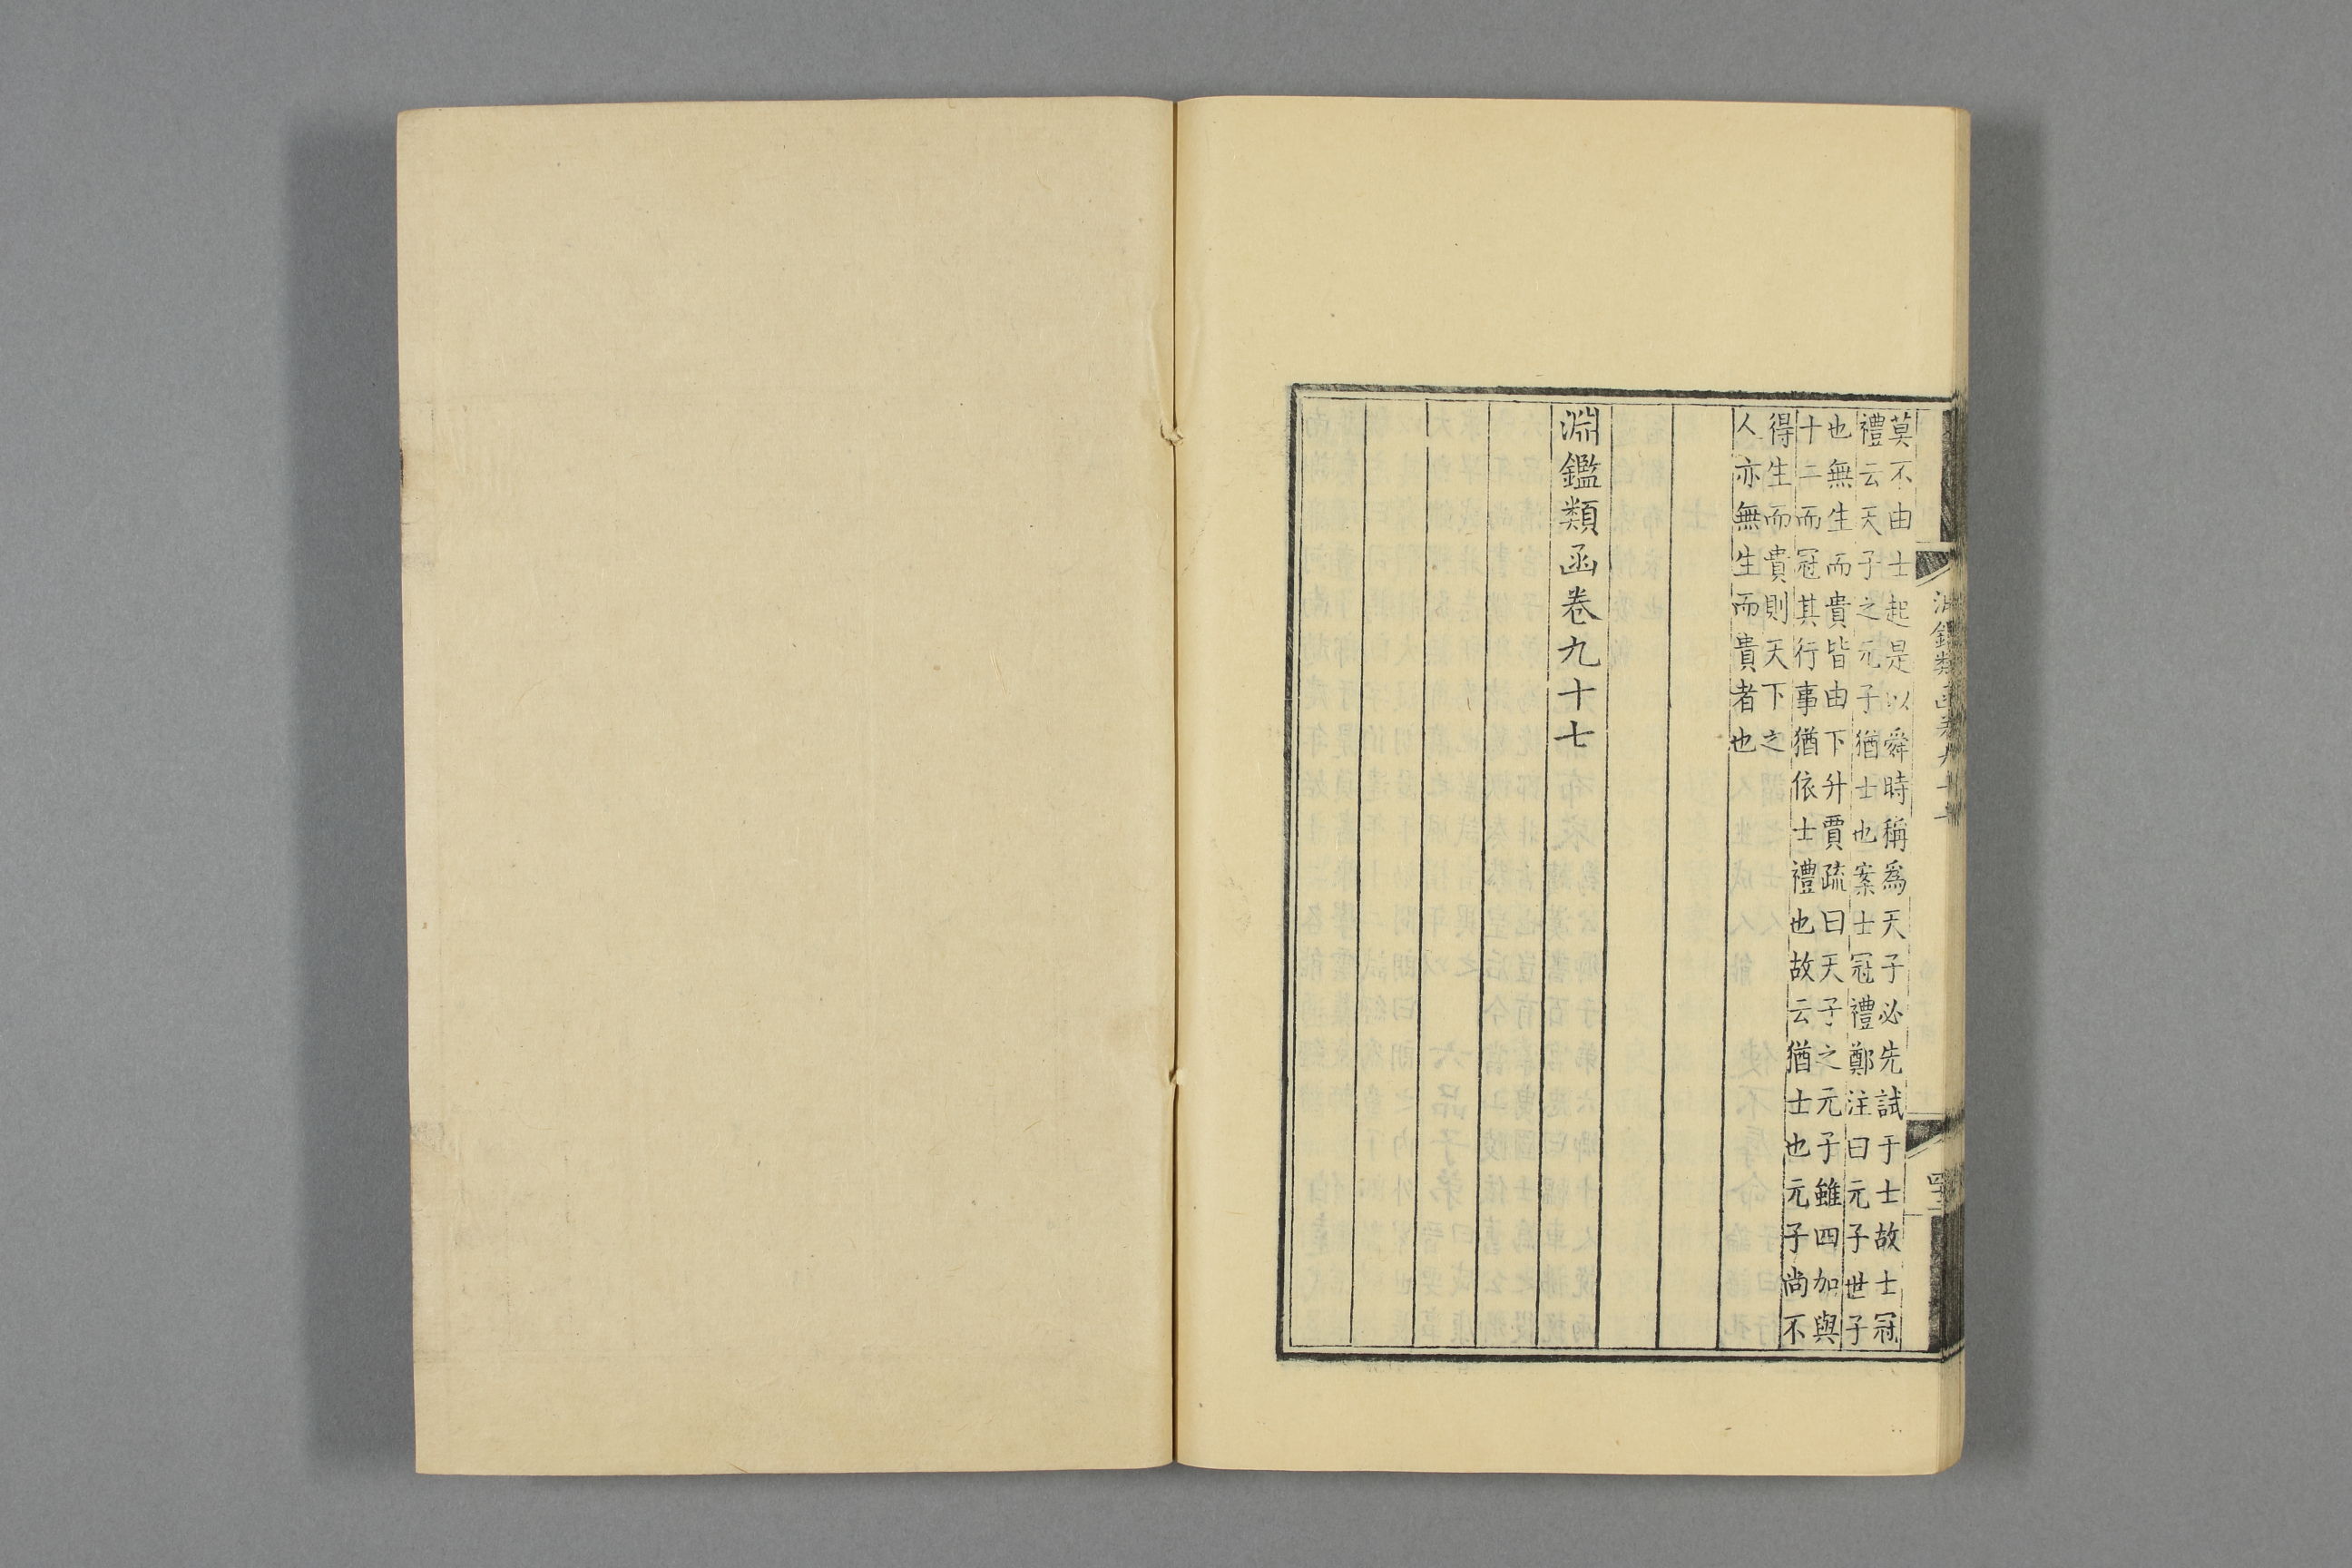 莫不由士起是以舜時稱爲天子必先試于士故士冠
禮云天子之元子猶士也案士冠禮鄭注曰元子世子
也無生而貴皆由下升賈疏曰天子之元子雖四加與
十二而冠其行事猶依士禮也故云猶士也元子尚不
得生而貴則天下之
人亦無生而貴者也
淵鑑類函卷九十七